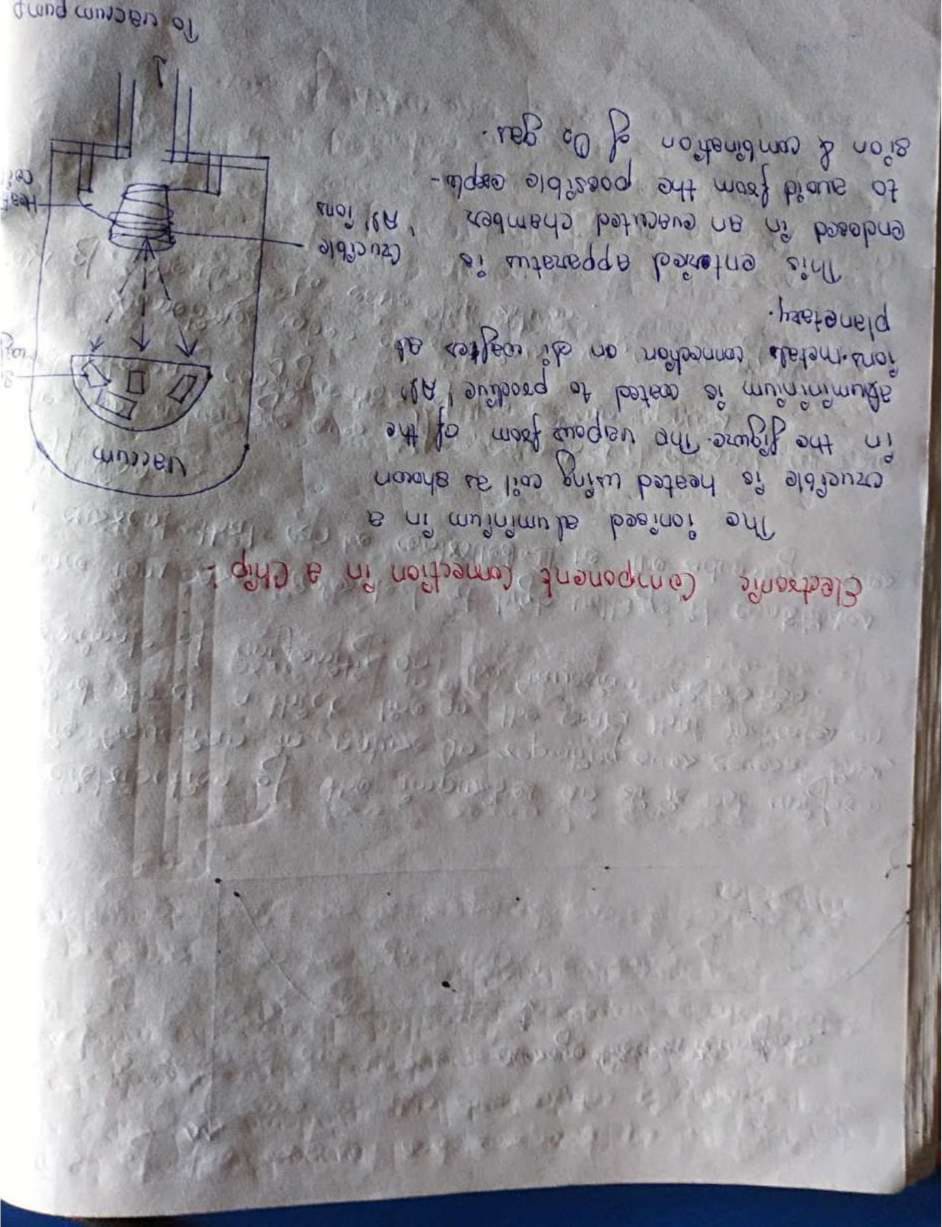 Electronic Component Connection in a Chip :
The ionised aluminium in a
crucible is heated using coil as shown
in the figure. The vapour from the
aluminium is coated to produce 'Al'
ions. metals connection on si wafter as
planetary.
This entered apparatus is
enclosed in an evacuted chamber
to avoid from the possible explo-
sion & combination of O2 gas.
Vaccum
Crucible
'Al' ions
To vaccum pump